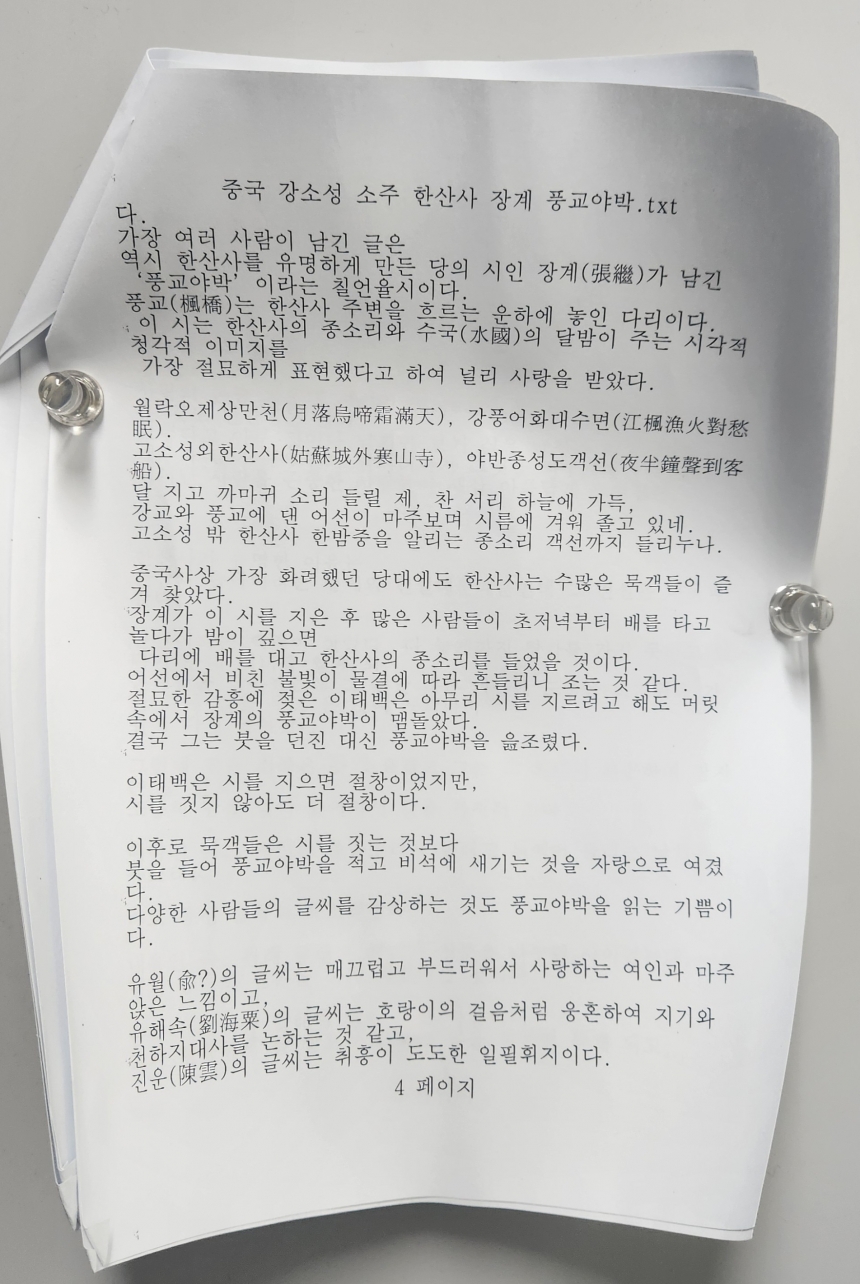 중국 강소성 소주 한산사 장계 풍교야박.txt
다.
가장 여러 사람이 남긴 글은
역시 한산사를 유명하게 만든 당의 시인 장계(張繼)가 남긴
‘풍교야박’ 이라는 칠언율시이다.
풍교(楓橋)는 한산사 주변을 흐르는 운하에 놓인 다리이다.
이 시는 한산사의 종소리와 수국(水國)의 달밤이 주는 시각적
청각적 이미지를
가장 절묘하게 표현했다고 하여 널리 사랑을 받았다.
월락오제상만천(月落烏啼霜滿天), 강풍어화대수면(江楓漁火對愁
眠).
고소성외한산사(姑蘇城外寒山寺), 야반종성도객선(夜半鐘聲到客
船).
달 지고 까마귀 소리 들릴 제, 찬 서리 하늘에 가득,
강교와 풍교에 댄 어선이 마주보며 시름에 겨워 졸고 있네.
고소성 밖 한산사 한밤중을 알리는 종소리 객선까지 들리누나.
중국사상 가장 화려했던 당대에도 한산사는 수많은 묵객들이 즐
겨 찾았다.
장계가 이 시를 지은 후 많은 사람들이 초저녁부터 배를 타고
놀다가 밤이 깊으면
다리에 배를 대고 한산사의 종소리를 들었을 것이다.
어선에서 비친 불빛이 물결에 따라 흔들리니 조는 것 같다.
절묘한 감흥에 젖은 이태백은 아무리 시를 지르려고 해도 머릿
속에서 장계의 풍교야박이 맴돌았다.
결국 그는 붓을 던진 대신 풍교야박을 읊조렸다.
이태백은 시를 지으면 절창이었지만,
시를 짓지 않아도 더 절창이다.
이후로 묵객들은 시를 짓는 것보다
붓을 들어 풍교야박을 적고 비석에 새기는 것을 자랑으로 여겼
다.
다양한 사람들의 글씨를 감상하는 것도 풍교야박을 읽는 기쁨이
다.
유월(兪?)의 글씨는 매끄럽고 부드러워서 사랑하는 여인과 마주
앉은 느낌이고,
유해속(劉海粟)의 글씨는 호랑이의 걸음처럼 웅혼하여 지기와
천하지대사를 논하는 것 같고,
진운(陳雲)의 글씨는 취흥이 도도한 일필휘지이다.
4 페이지